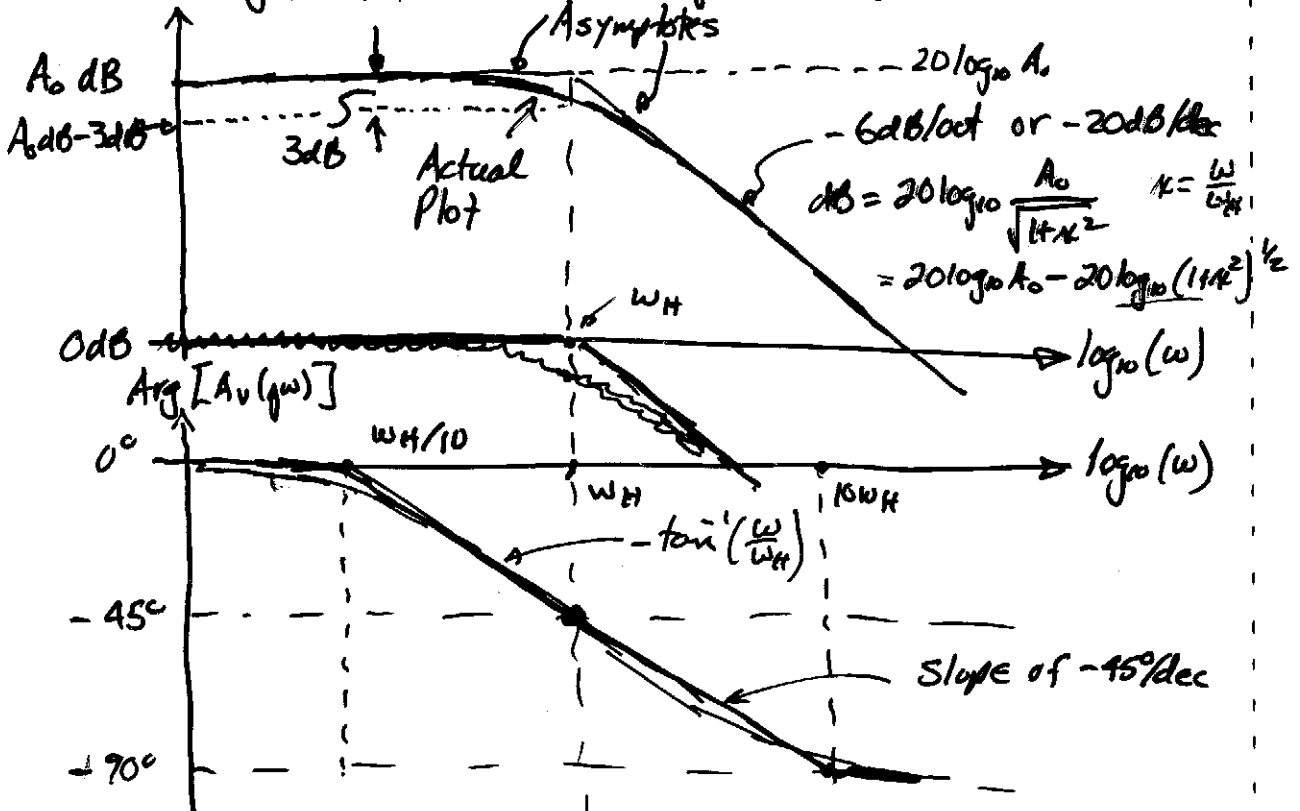 Asymptotes
A₀ dB
20log₁₀ A₀
A₀dB-3dB
3dB
Actual
Plot
-6dB/oct or -20dB/dec
dB = 20log₁₀ A₀/√(1+x²) x = ω/ω_H
= 20log₁₀ A₀ - 20log₁₀ (1+x²)^½
ω_H
0dB
log₁₀(ω)
Arg [A_v(jω)]
0°
ω_H/10
ω_H
10ω_H
log₁₀(ω)
-tan⁻¹(ω/ω_H)
-45°
Slope of -45°/dec
-90°